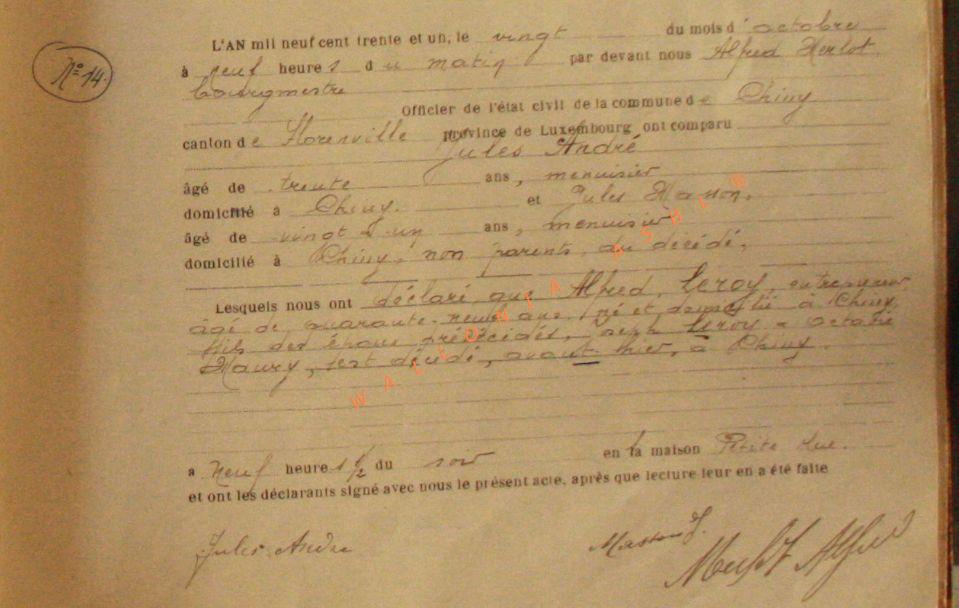 N° 14.
L'AN mil neuf cent trente et un, le vingt du mois d'octobre
à neuf heures du matin par devant nous Alfred Herlot
bourgmestre
Officier de l'état civil de la commune de Chiny
canton de Florenville province de Luxembourg ont comparu
Jules André
âgé de trente ans, menuisier
domicilié à Chiny. et Jules
âgé de vingt-un ans, menuisier
domicilié à Chiny, non parents du décédé,
Lesquels nous ont déclaré que Alfred, Leroy, entrepreneur
âgé de quarante-neuf ans, né et domicilié à Chiny,
fils des époux prédécédés, Joseph Leroy - Octavie
Maury, est décédé, avant-hier, à Chiny.
à neuf heures 1/2 du soir en la maison Petite Rue.
et ont les déclarants signé avec nous le présent acte, après que lecture leur en a été faite
Jules André
Alfred
WALLONIA